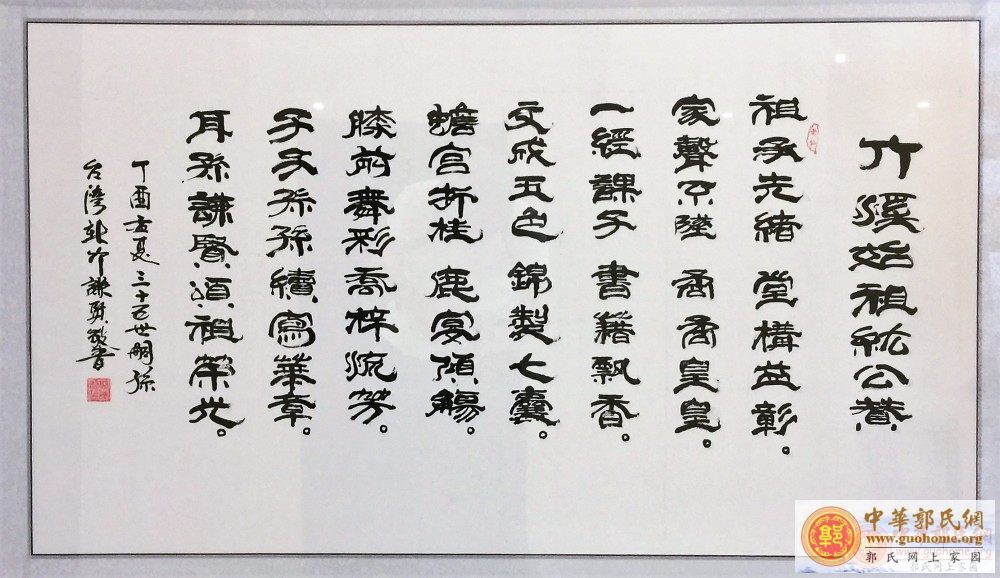 竹溪始祖紘公賛
祖承先緒 堂構益彰。
家聲不墜 矞矞皇皇。
一經課子 書籍飄香。
文成五色 錦製七囊。
蟾宮折桂 鹿宴傾觴。
膝前舞彩喬梓流芳。
子子孫孫續寫華章。
耳孫謙賢頌祖榮光。
丁酉夏三十五世嗣孫
台灣新竹謙賢敬書
中華郭氏網
www.guohome.org
郭氏网上家园